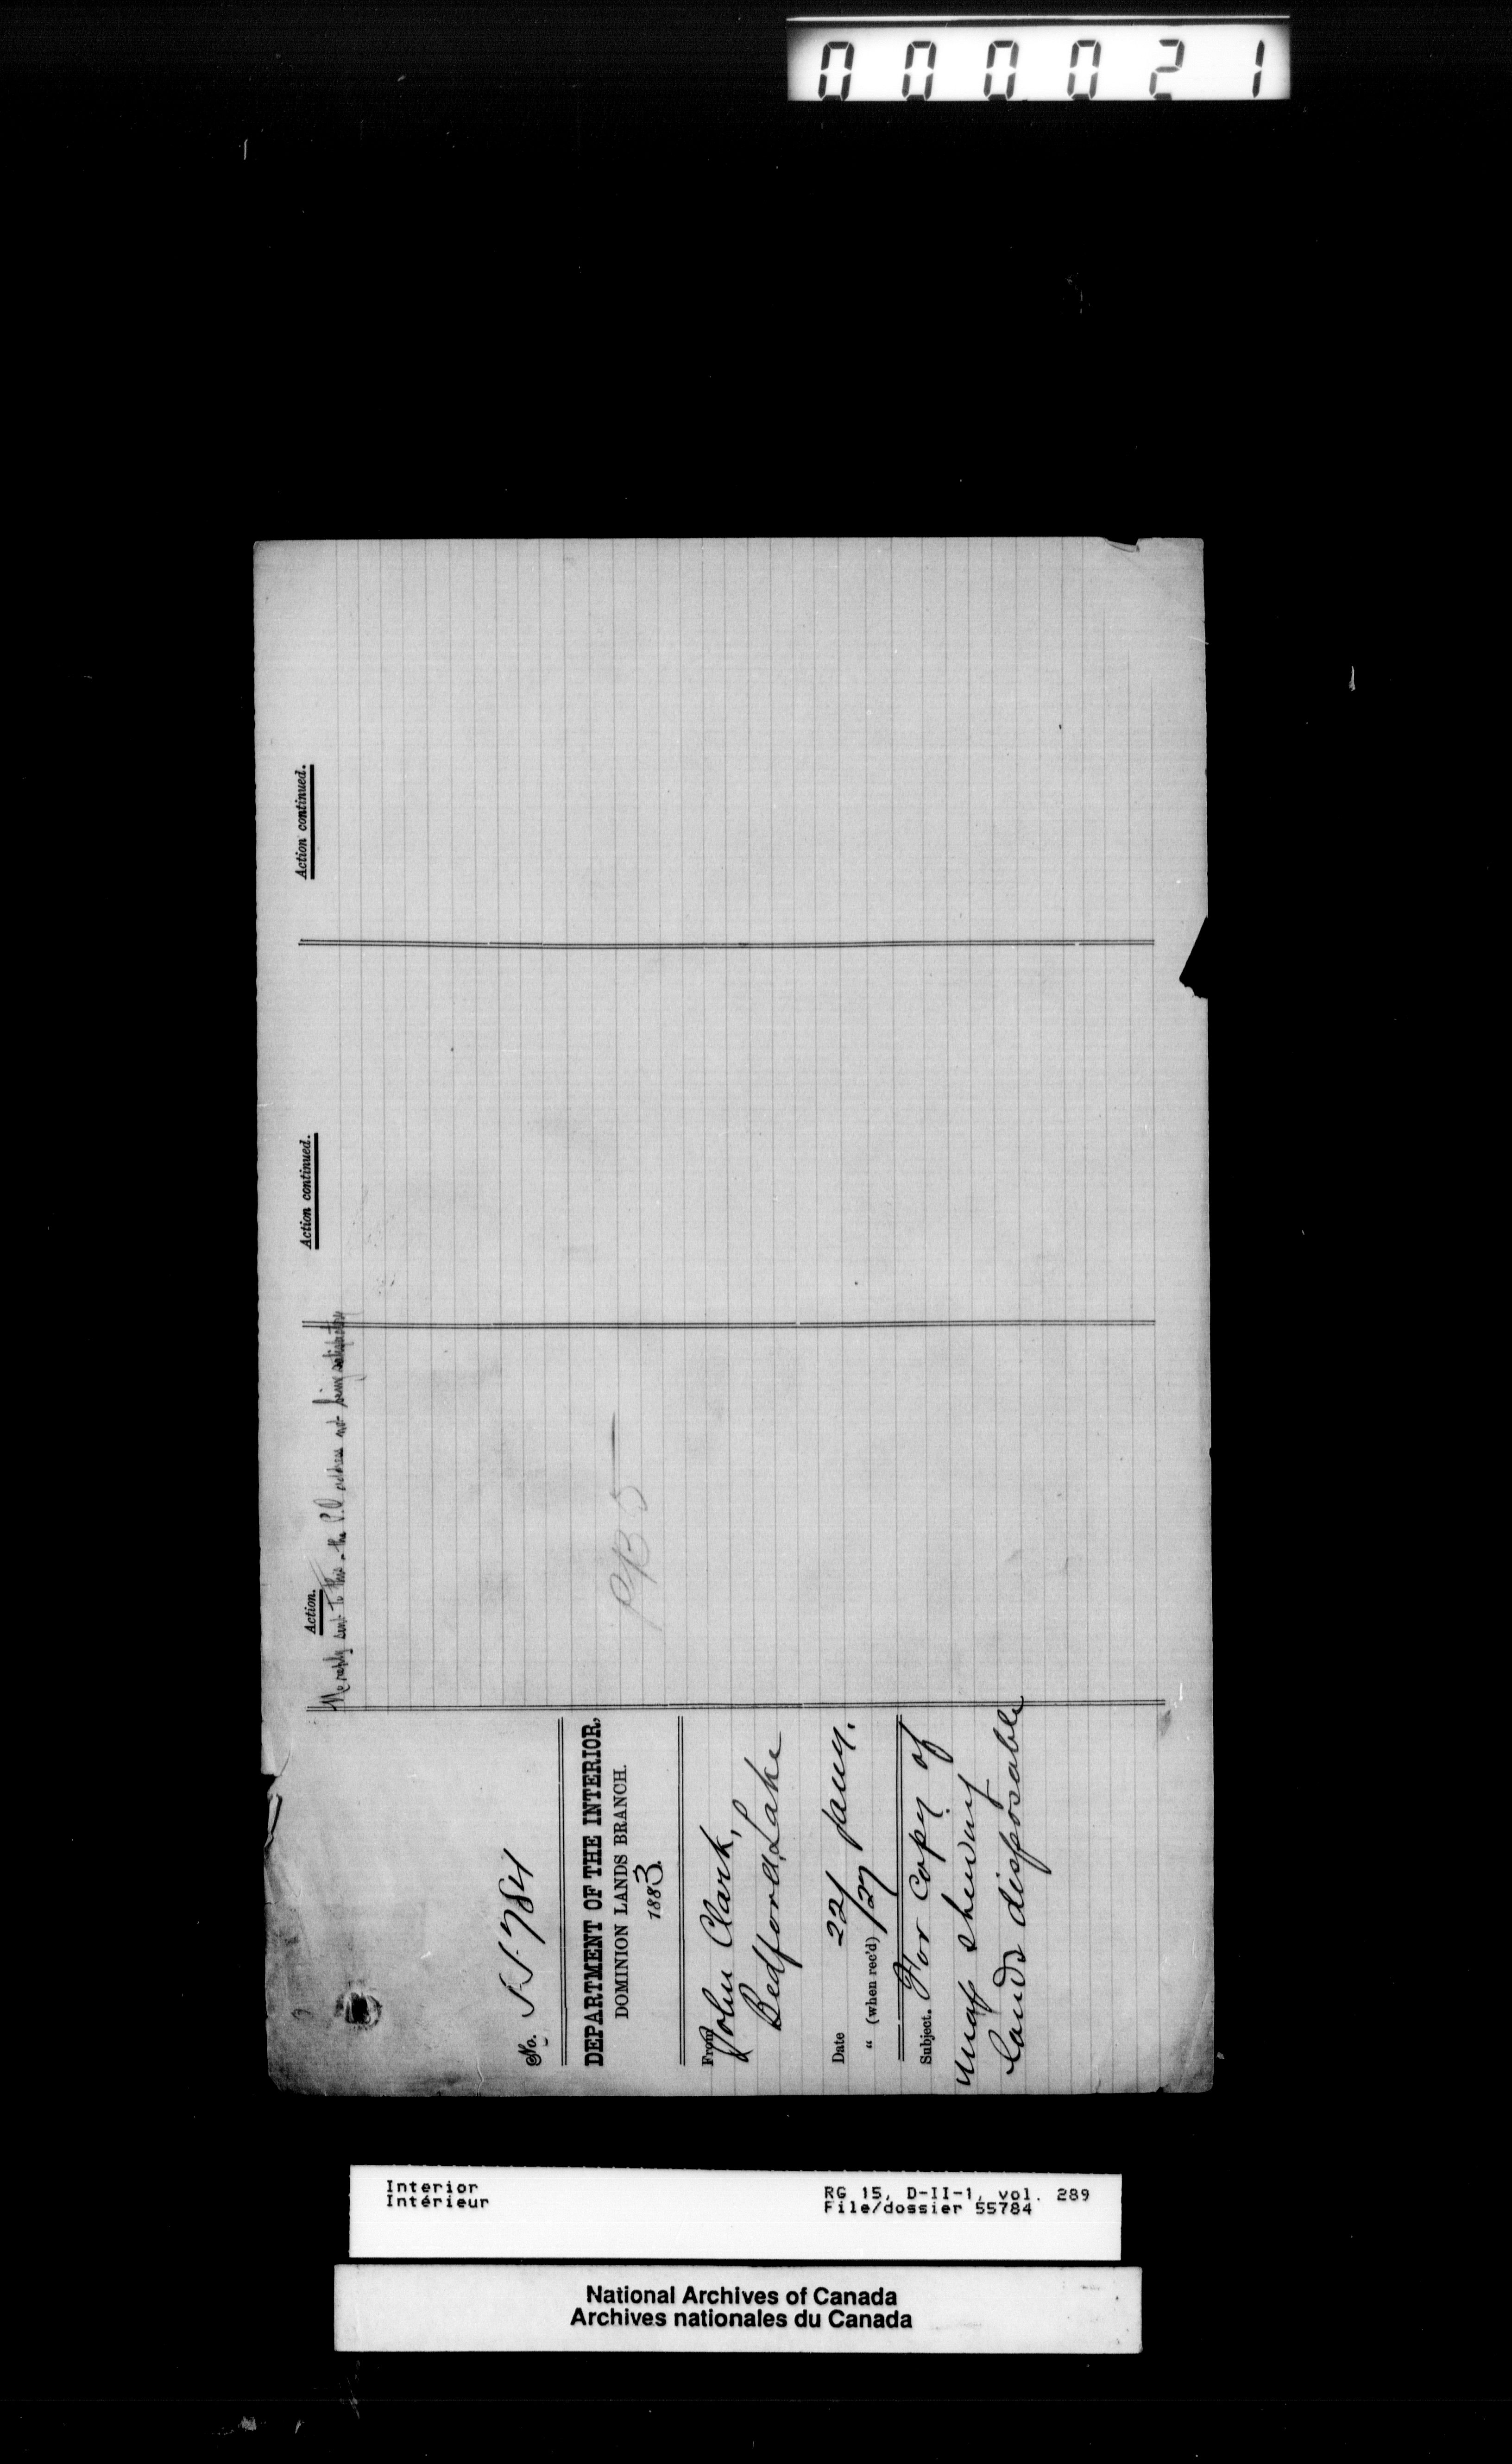 000021
No. 55784
DEPARTMENT OF THE INTERIOR,
DOMINION LANDS BRANCH.
1883.
From John Clark,
Bedford Lake
Date 22 Jany.
" (when rec'd) /27
Subject. For copy of
map shewing
lands disposable
Action.
No reply sent to this - the P.O address not being satisfactory
Action continued.
Action continued.
Interior
Intérieur
RG 15, D-II-1, vol. 289
File/dossier 55784
National Archives of Canada
Archives nationales du Canada